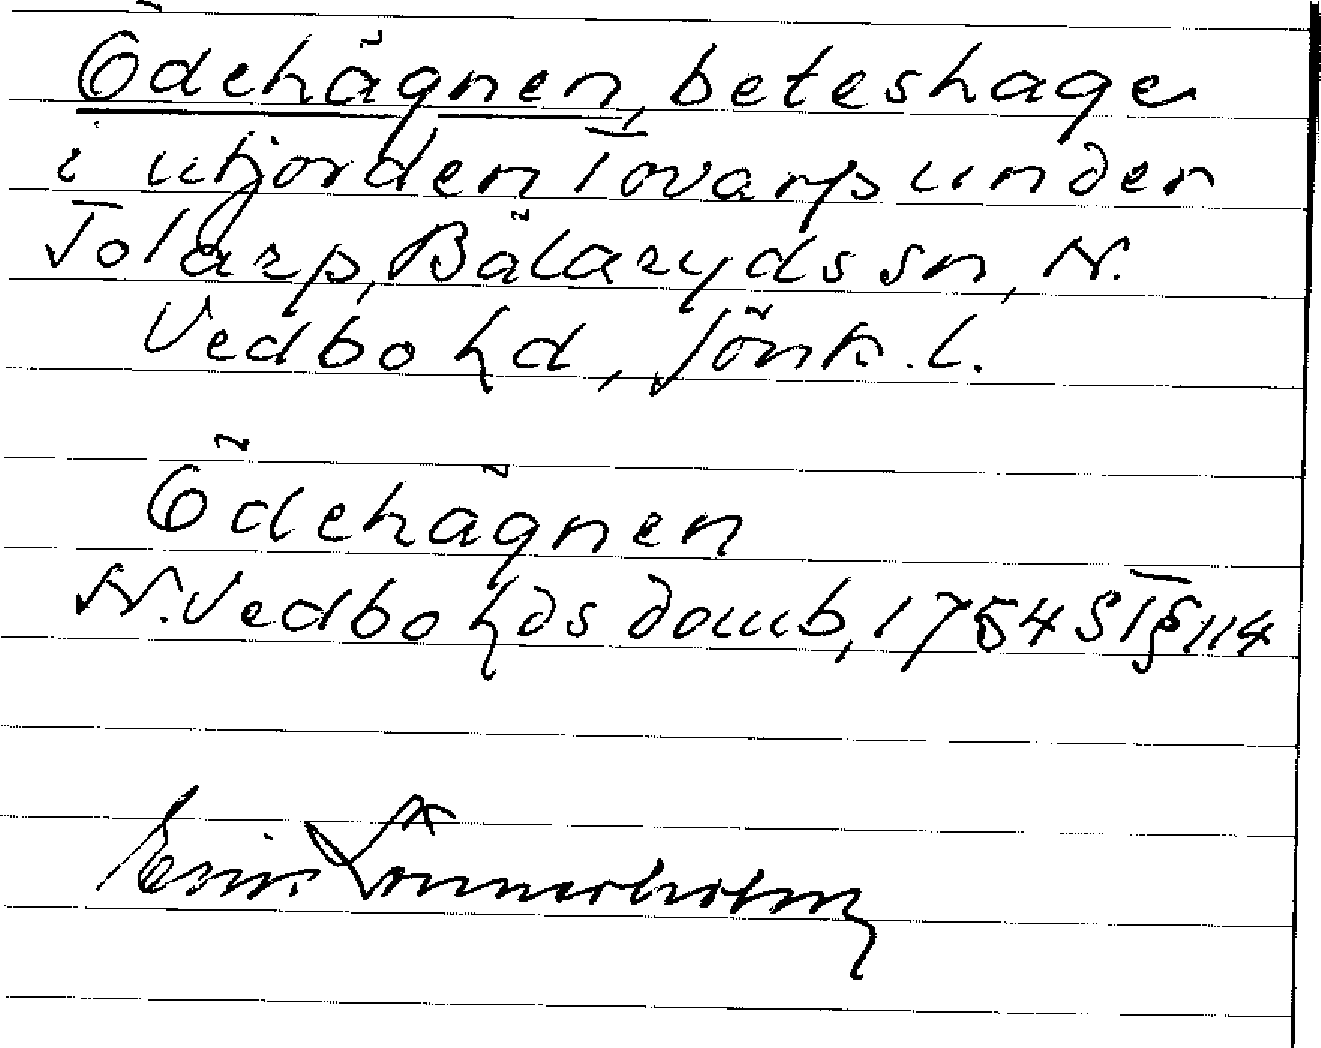 Ödehägnen, beteshage
i utjorden Tovarp under
Tolarp, Bälaryds sn, N.
Vedbo hd, Jönk. l.
Ödehägnen
N. Vedbo hds domb, 1754 ST § 114